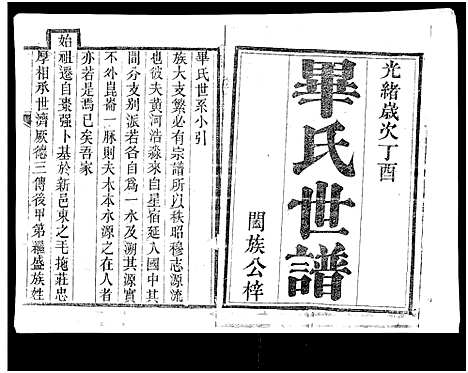 光緒歲次丁酉
畢氏世譜
闔族公梓
畢氏世系小引
族大支繁必有宗譜所以秩昭穆志源流
也彼夫黃河浩淼來自星宿延入國中其
間分支別派若各自爲一水及溯其源實
不外崑崙一脈則夫木本水源之在人者
亦若是焉已矣吾家
始祖遷自棗强卜基於新邑東之毛拖莊忠
厚相承世濟厥德三傳後甲第繼盛族姓